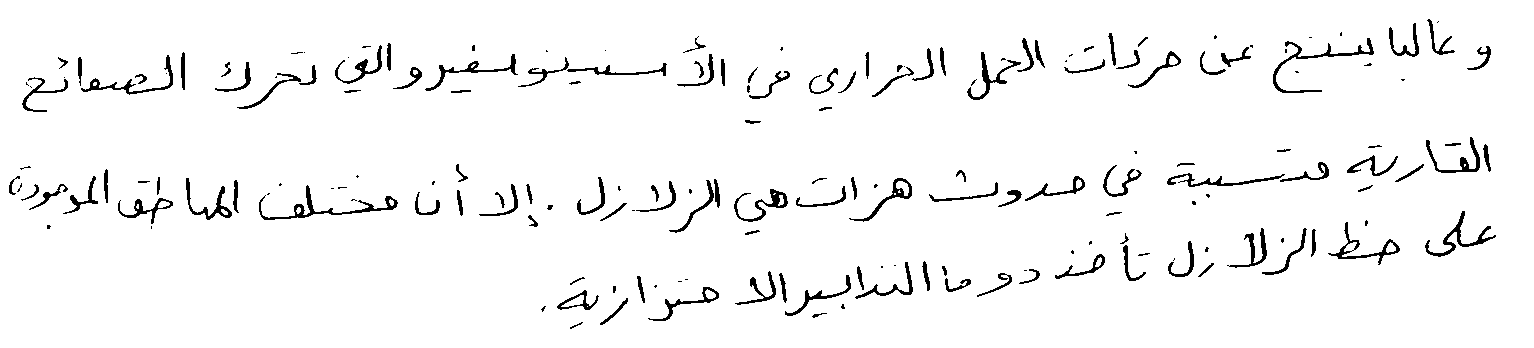 وغالبا ينتج عن حركات الحمل الحراري في الأستينوسفير والتي تحرك الصفائح
القارية متسببة في حدوث هزات هي الزلازل . إلا أن مختلف المناطق الموجودة
على خط الزلازل تأخذ دوما التدابير الاحترازية .